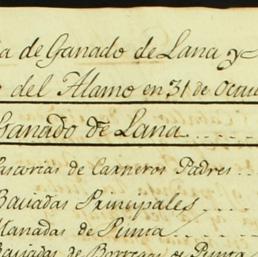 de Ganado de Lana y
del Alamo en 31 de Octu
Ganado de Lana
de Carneros Padres
Principales
Manadas de Punta
de Borregos de Punta